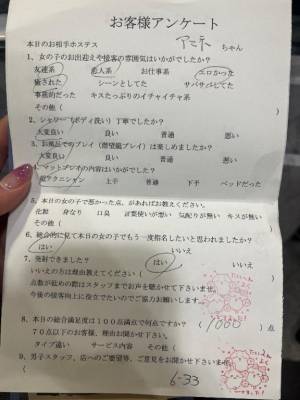 お客様アンケート
本日のお相手ホステス アニネ ちゃん
1、女の子のお出迎えや接客の雰囲気はいかがでしたか?
友達系 恋人系 お仕事系 エロかった
癒された シーンとしてた サバサバしてた
事務的だった キスたっぷりのイチャイチャ系
その他(
2、シャワー(ボディ洗い)丁寧でしたか?
大変良い 良い 普通 悪い
3、お風呂でのプレイ(潜望鏡プレイ)は楽しめましたか?
大変良い 良い 普通
マットプレイの内容はいかがでした?
超テクニシャン 上手 普通 下手 ベッドだった
5、本日の女の子で悪かった点、があればお教えください。
化粧 身なり 口臭 言葉使いが悪い 気配りが無い キスが無い
その他(
6、総合的に見て本日の女の子でもう一度指名したいと思われましたか?
はい いいえ
7、発射できました? はい いいえ
いいえの方は理由お教えてください(
点数が低めの際はスタッフまでお声を聴かせて下さいませ。
今後の接客向上に役立てたいのでご協力お願いします。
8、本日の総合満足度は100点満点で何点ですか?(1000)点
70点以下のお客様、理由お聞かせ下さい。
タイプ違い サービス内容 その他(
9、男子スタッフ、店へのご要望等、ご意見をお聞かせ下さいませ
6-33